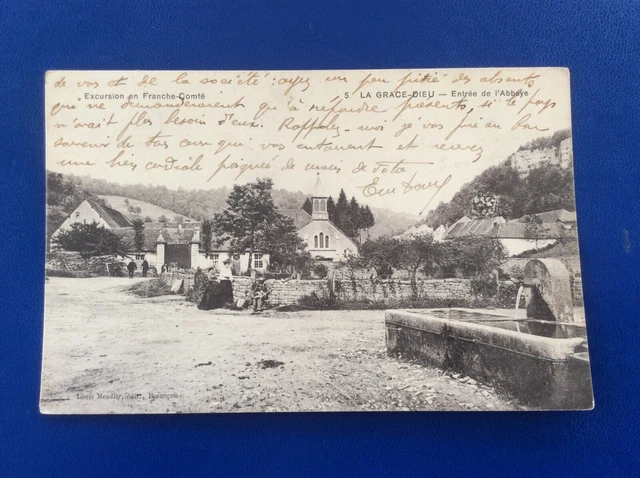 de vos et de la société : ayez un peu pitié des absents
Excursion en Franche-Comté
5 LA GRACE-DIEU — Entrée de l'Abbaye
qui ne demanderaient qu'à redevenir présents, si le pays
n'avait plus besoin d'eux. Rappelez-moi je vous prie au bon
souvenir de tous ceux qui vous entourent et recevez
une très cordiale poignée de main de votre
Louis Mosdier, édit., Besançon